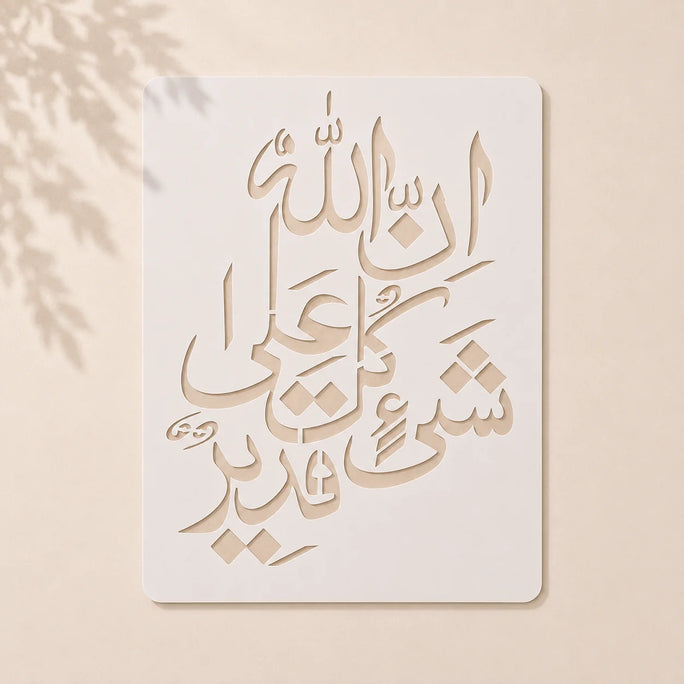 إِنَّ اللّٰهَ
عَلَى كُلِّ
شَيْءٍ
قَدِيرٌ